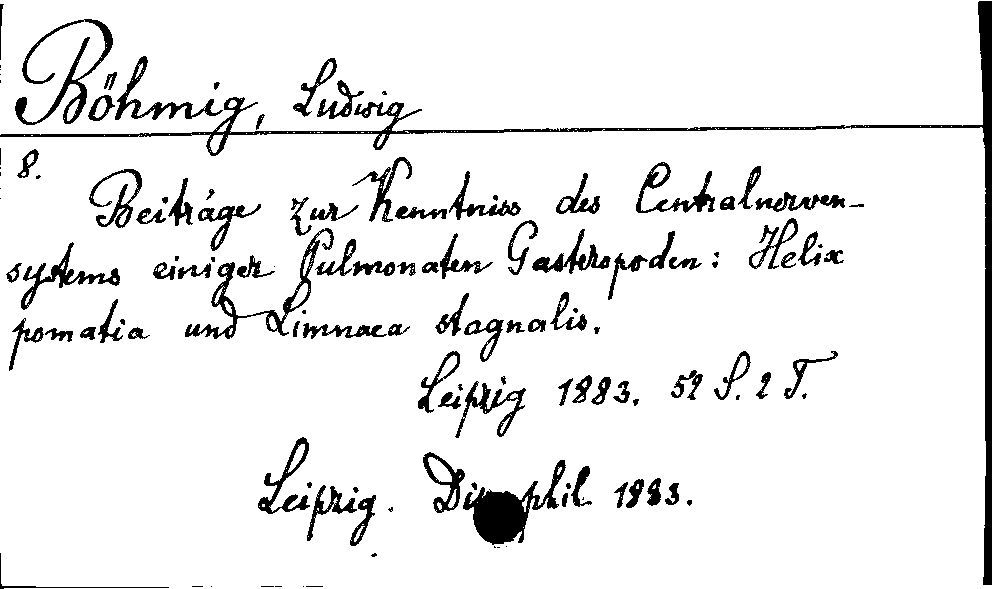 Böhmig, Ludwig
8.
Beiträge zur Kenntniss des Centralnerven-
systems einiger Pulmonaten Gasteropoden: Helix
pomatia und Limnaea stagnalis.
Leipzig 1883. 52 S. 2 T.
Leipzig. phil 1883.